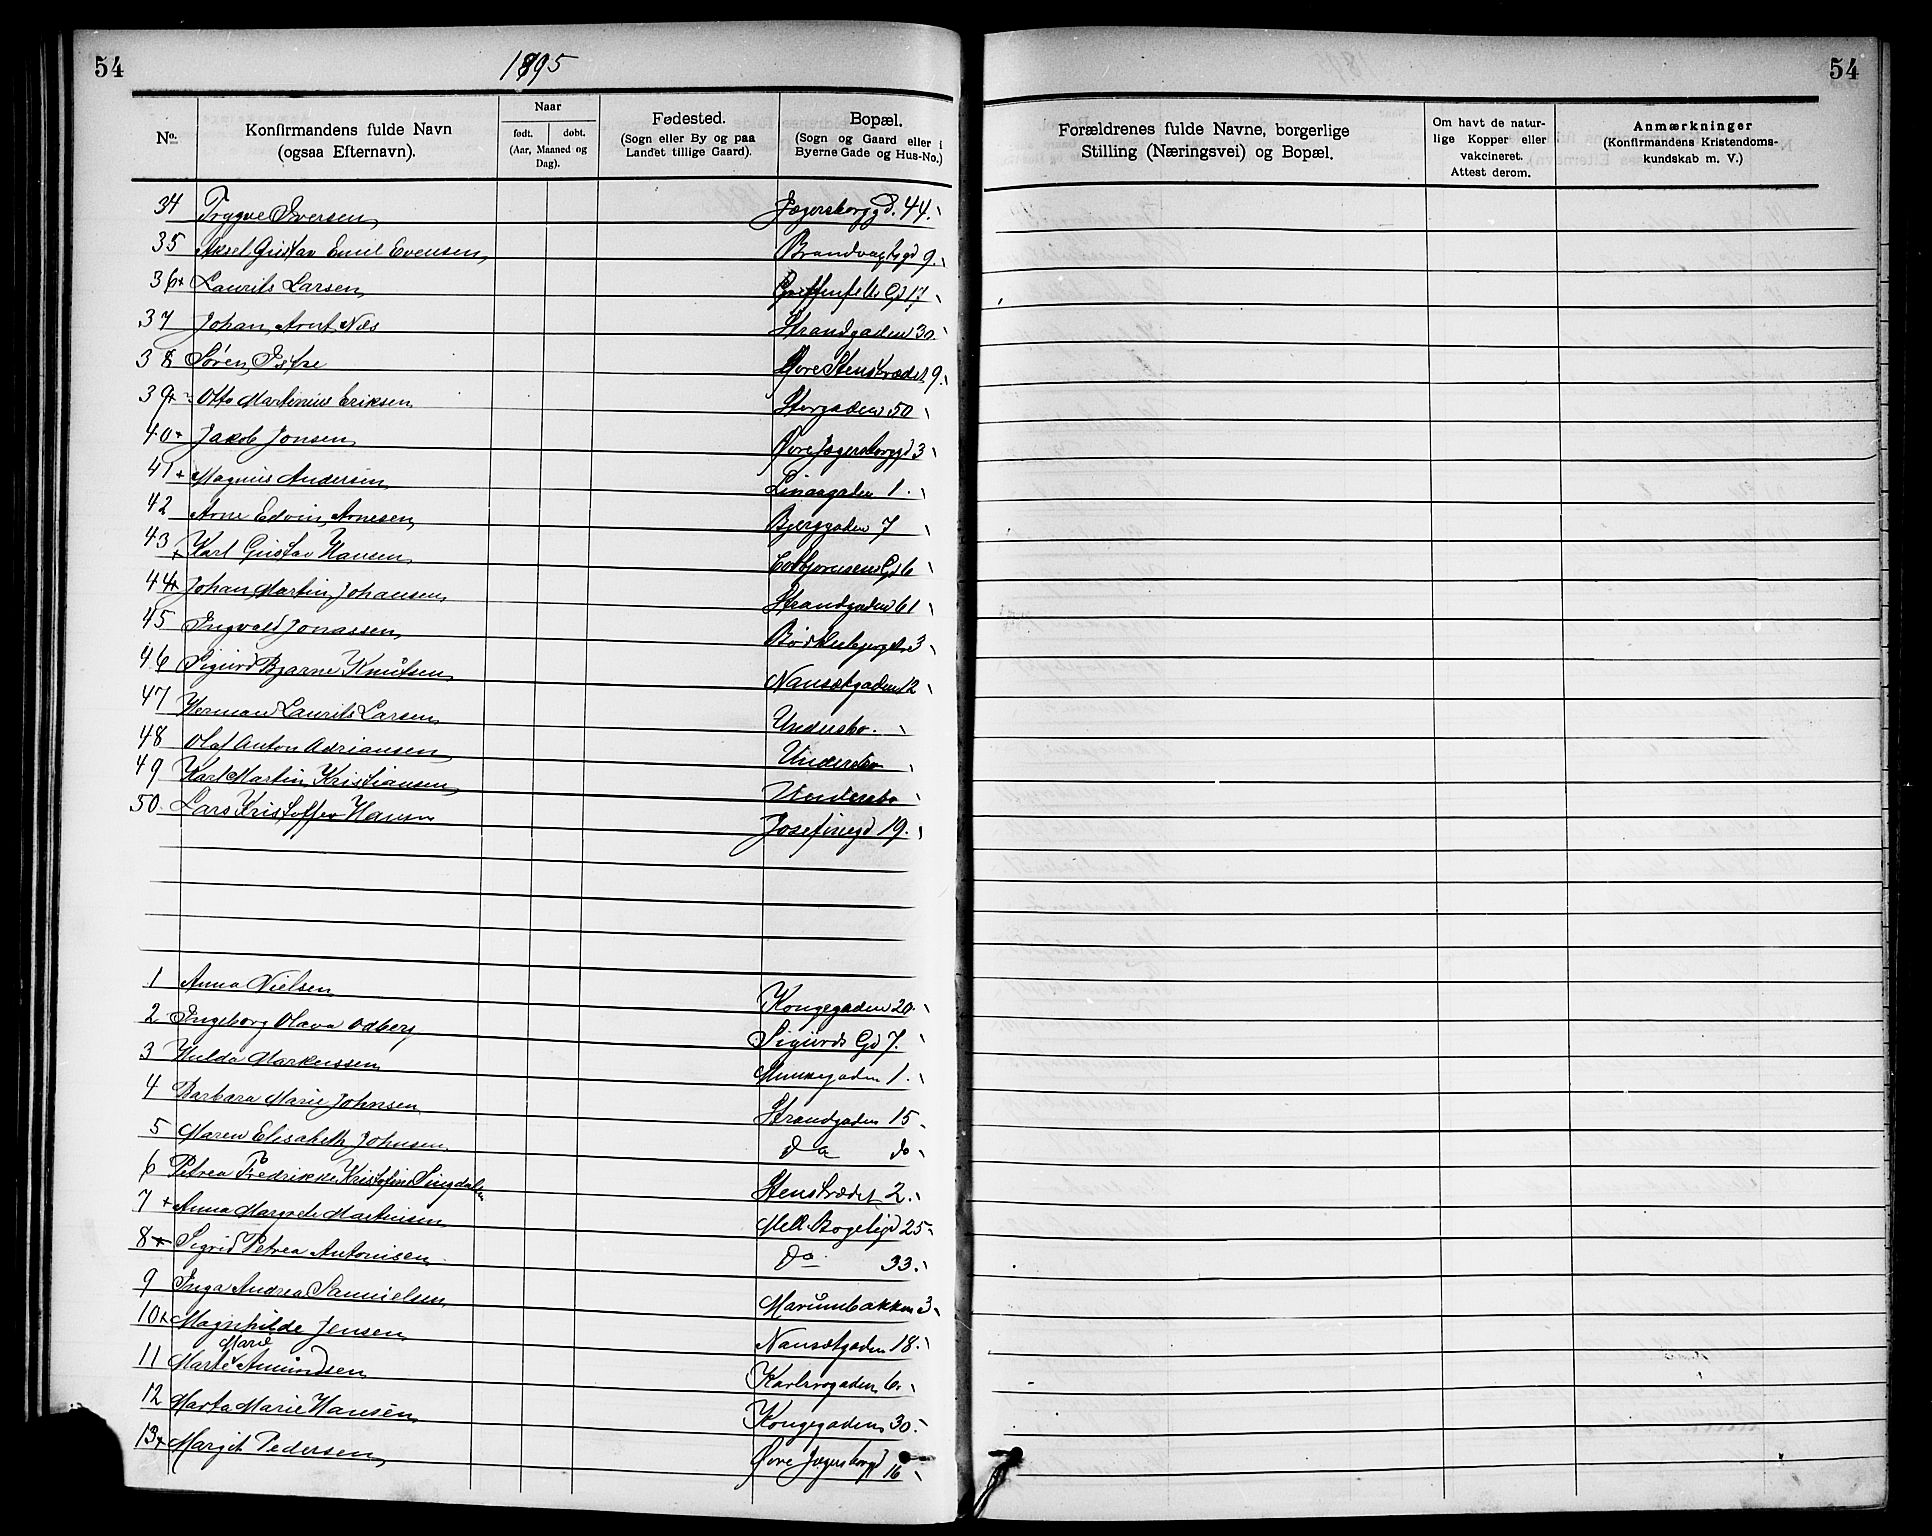 54
1895
54
No. Konfirmandens fulde Navn (ogsaa Efternavn). Naar født. døbt. (Aar, Maaned og Dag). Fødested. (Sogn eller By og paa Landet tillige Gaard). Bopæl. (Sogn og Gaard eller i Byerne Gade og Hus-No.)
Forældrenes fulde Navne, borgerlige Stilling (Næringsvei) og Bopæl. Om havt de naturlige Kopper eller vakcineret. Attest derom. Anmærkninger (Konfirmandens Kristendomskundskab m. V.)
34 Trygve Iversen Jegersborggd. 44.
35 Aksel Gustav Emil Evensen Brandvagtsgd 9.
36+ Laurits Larsen Griffenfelts Gd 17
37 Johan Arnt Næs Strandgaden 30
38 Søren Istre Øvre Stenstrædet 9.
39+ Otto Martenius Eriksen Storgaden 50
40+ Jakob Jonsen Øvre Jegersborggd 3
41+ Magnus Andersen Linaagaden 1.
42 Arne Edvin Arnesen Bjerggaden 7
43+ Karl Gustav Hansen Colbjørnsens Gd 6
44+ Johan Martin Johansen Strandgaden 61
45 Ingvald Jonassen 3
46 Sigurd Bjarne Knutsen Nansetgaden 12
47 Herman Laurits Larsen Undersbo.
48 Olaf Anton Adriansen Undersbo
49 Karl Martin Kristiansen Undersbo
50. Lars Kristoffer Hansen Josefinegd 19.
1 Anna Nielsen Kongegaden 20.
2 Ingeborg Olava Odberg Sigurds Gd 7.
3 Hulda Markussen Munkegaden 1.
4 Barbara Marie Johnsen Strandgaden 15
5 Maren Elisabeth Johnsen do do
6 Petrea Fredrikke Kristofine Singdalsen Stenstrædet 2.
7+ Anna Margrete Martinsen Mell. Bøgeligd 25
8+ Sigrid Petrea Antonisen do 33.
9 Inga Andrea Samuelsen Marumbakken 3
10+ Magnhilde Jensen Nansetgaden 18.
11 Marte Marie Amundsen Karlsrogaden 6.
12 Marta Marie Hansen Kongegaden 30.
13+ Margit Pedersen Øvre Jegersborgd 16